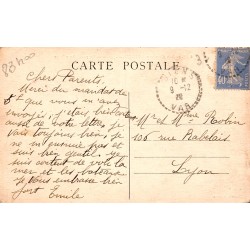 CARTE POSTALE
Chers Parents.
Merci du mandat de
que vous m'avez
envoyé, j'étais bien content
aussi de votre lettre, je
vais toujours bien, je ne
m'ennuie pas et
suis bien gentil, je
suis content de voir la
mer et les bateaux
Je vous embrasse bien
fort Emile
9 - 12
VAR
Mr et Mme Robin
106 rue Rabelais
Lyon